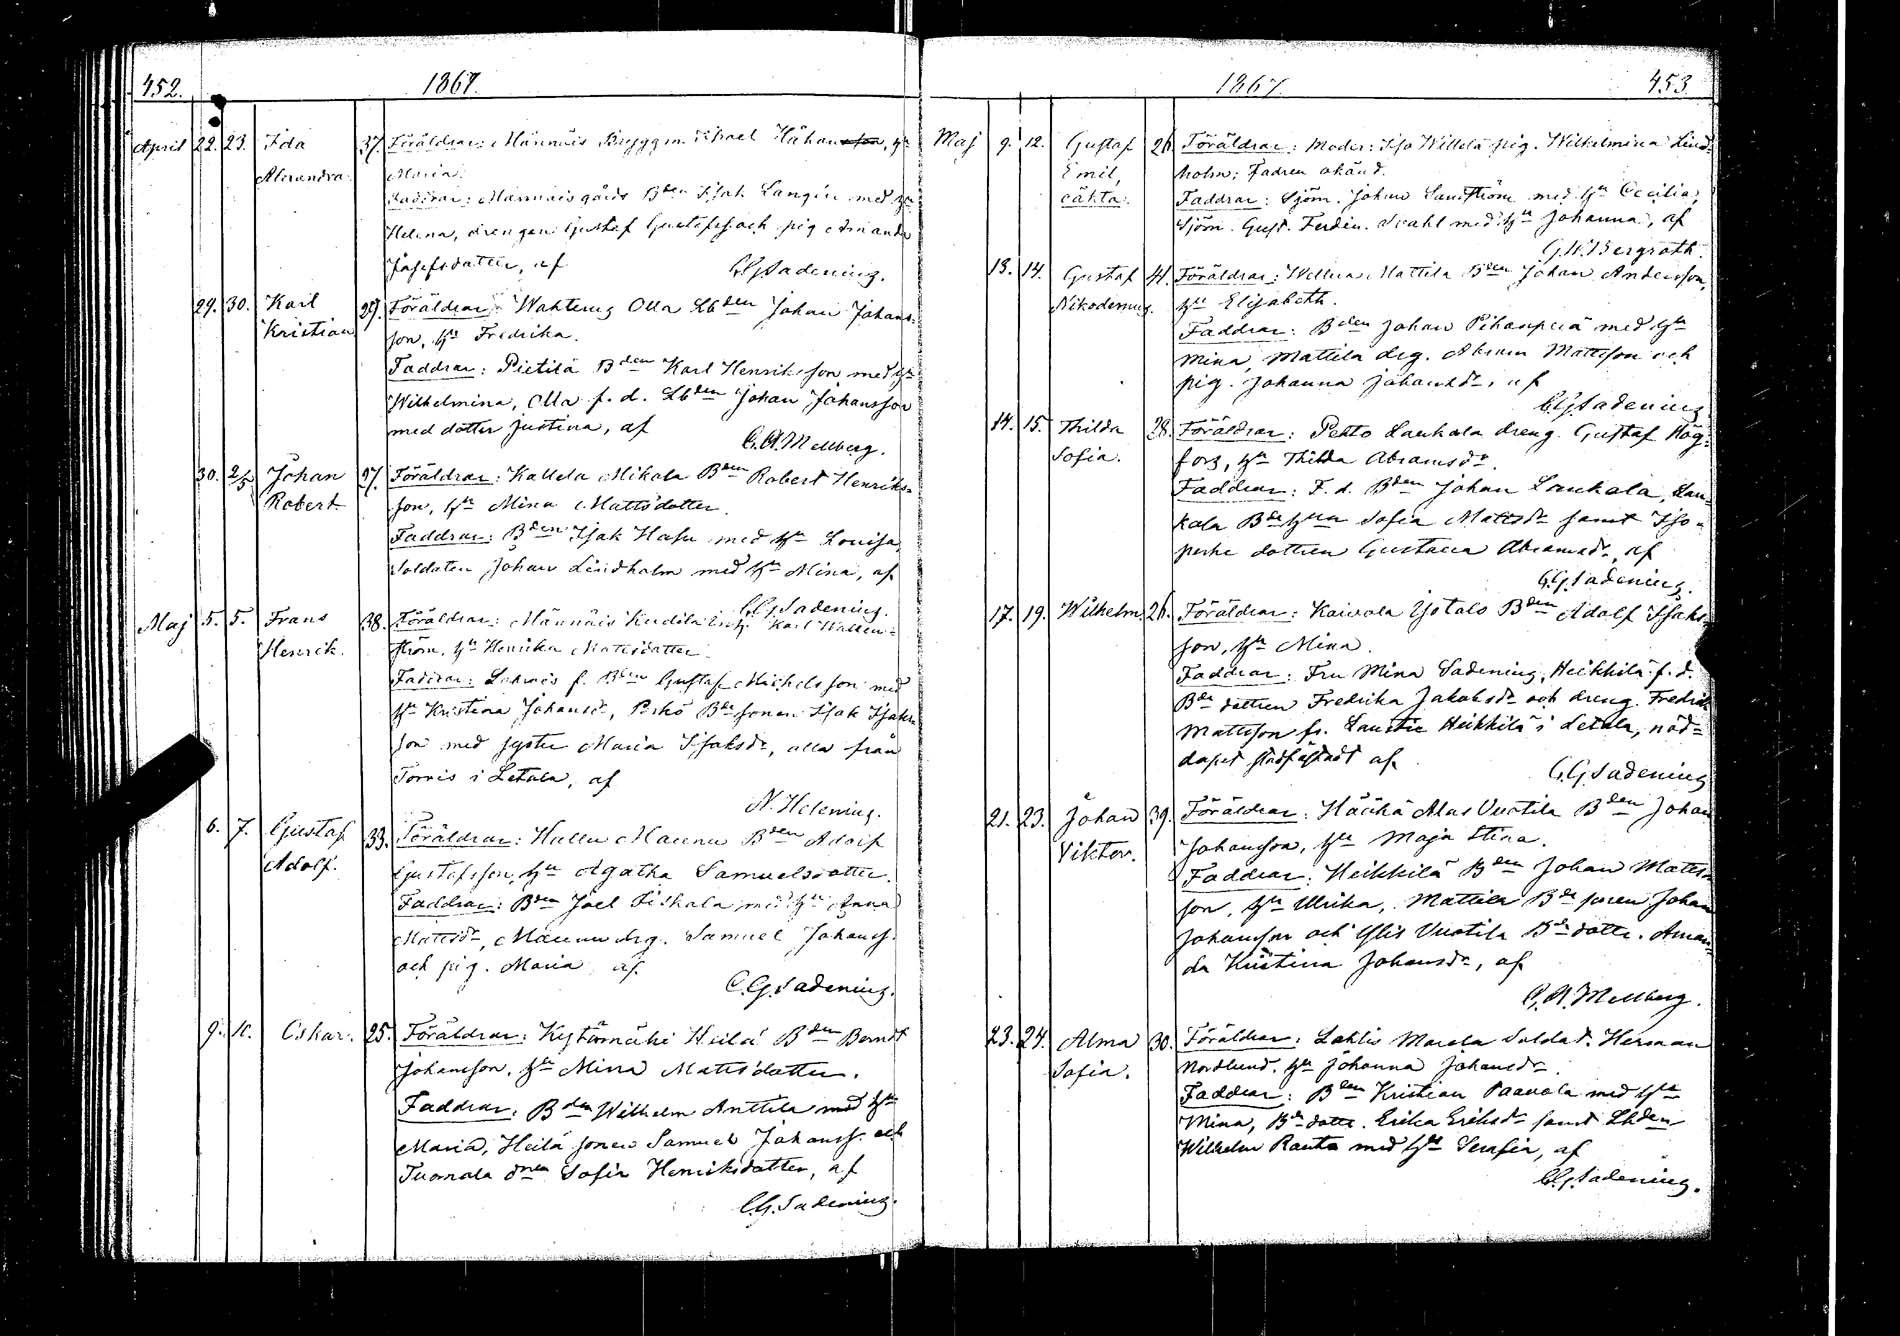 452.
1867.
April 22. 23. Ida 37. Föräldrar: Männäis Bryggm. Israel Håkansson, Hu
Alexandra. Maria.
Faddrar: Männäis gårds Bden Isak Langén med Hu
Helena, drengen Gustaf Gustafss. och pig. Amanda
Josefsdotter, af
C.G. Sadenius.
29. 30. Karl 29. Föräldrar: Wahterus Olla Lbden Johan Johans-
Kristian son, Hu Fredrika.
Faddrar: Pietilä Bden Karl Henriksson med Hu
Wilhelmina, Olla f. d. Lbden Johan Johansson
med dotter Justina, af
C.A. Mellberg.
30. 2/5 Johan 37. Föräldrar: Kallela Mikola Bden Robert Henriks-
Robert son, Hu Mina Mattsdotter.
Faddrar: Bden Isak Hasu med Hu Louisa,
Soldaten Johan Lindholm med Hu Mina, af
C.G. Sadenius.
Maj 5. 5. Frans 38. Föräldrar: Männäis Karl Wallen-
Henrik. ström, Hu Henrika Mattsdotter.
Faddrar: f. Bden Gustaf Michelsson med
Hu Kristina Johansdr, Bdesonen Isak Isaks
son med syster Maria Isaksdr, alla från
Torris i Letala, af
N. Helenius.
6. 7. Gustaf 33. Föräldrar: Hallu Maunu Bden Adolf
Adolf. Gustafsson, Hu Agatha Samuelsdotter.
Faddrar: Bden Joel Fiskala med Hu Anna
Mattsdr, Maunu drg. Samuel Johanss.
och pig. Maria af
C.G. Sadenius.
9. 10. Oskar. 25. Föräldrar: Kytämäki Heilä Bden Berndt
Johansson, Hu Mina Mattsdotter.
Faddrar: Bden Wilhelm Anttila med Hu
Maria, Heilä sonen Samuel Johanss. och
Tuomola dren Sofia Henriksdotter, af
C.G. Sadenius.
1867.
453.
Maj 9. 12. Gustaf 26. Föräldrar: Moder: Iso Willilä pig. Wilhelmina Lind-
Emil, holm; Fadren okänd.
oäkta. Faddrar: Sjöm. Johan Sandström med Hu Cecilia,
Sjöm. Gust. Ferdin. med Hu Johanna, af
G.W. Bergroth.
13. 14. Gustaf 41. Föräldrar: Wellua Mattila Bden Johan Andersson,
Nikodemus. Hu Elisabeth.
Faddrar: Bden Johan Pihanperä med Hu
Mina, Mattila drg. Abram Mattsson och
pig. Johanna Johansdr, af
C.G. Sadenius
14. 15. Thilda 28. Föräldrar: Pehto Laukola dreng. Gustaf Hög-
Sofia. fors, Hu Thilda Abramsdr.
Faddrar: F. d. Bden Johan Laukola, Lau-
kola Bdehun Sofia Mattsdr samt Iso-
perhe dottren Gustava Abramsdr, af
C.G. Sadenius.
17. 19. Wilhelm. 26. Föräldrar: Kaivola Ylötalo Bden Adolf Isaks-
son, Hu Mina.
Faddrar: Fru Mina Sadenius, Heikkilä f. d.
Bde dottren Fredrika Jakobsdr och dreng. Fredrik
Mattsson fr. Laustie Heikkilä i Letala, nöd-
dopet stadfästadt af
C.G. Sadenius
21. 23. Johan 39. Föräldrar: Häähä Alas Vuotila Bden Johan
Viktor. Johansson, Hu Maja Stina.
Faddrar: Heikkilä Bden Johan Matts-
son, Hu Ulrika, Mattila Bde sonen Johan
Johansson och Ylis Vuotila Bde dottr. Aman-
da Kristina Johansdr, af
C.A. Mellberg.
23. 24. Alma 30. Föräldrar: Lahlis Marola Soldat. Herman
Sofia. Nordlund, Hu Johanna Johansdr.
Faddrar: Bden Kristian Paavola med Hu
Mina, Bde dottr. Erika Eriksdr samt Lbden
Wilhelm Rauta med Hu Serafia, af
C.G. Sadenius.